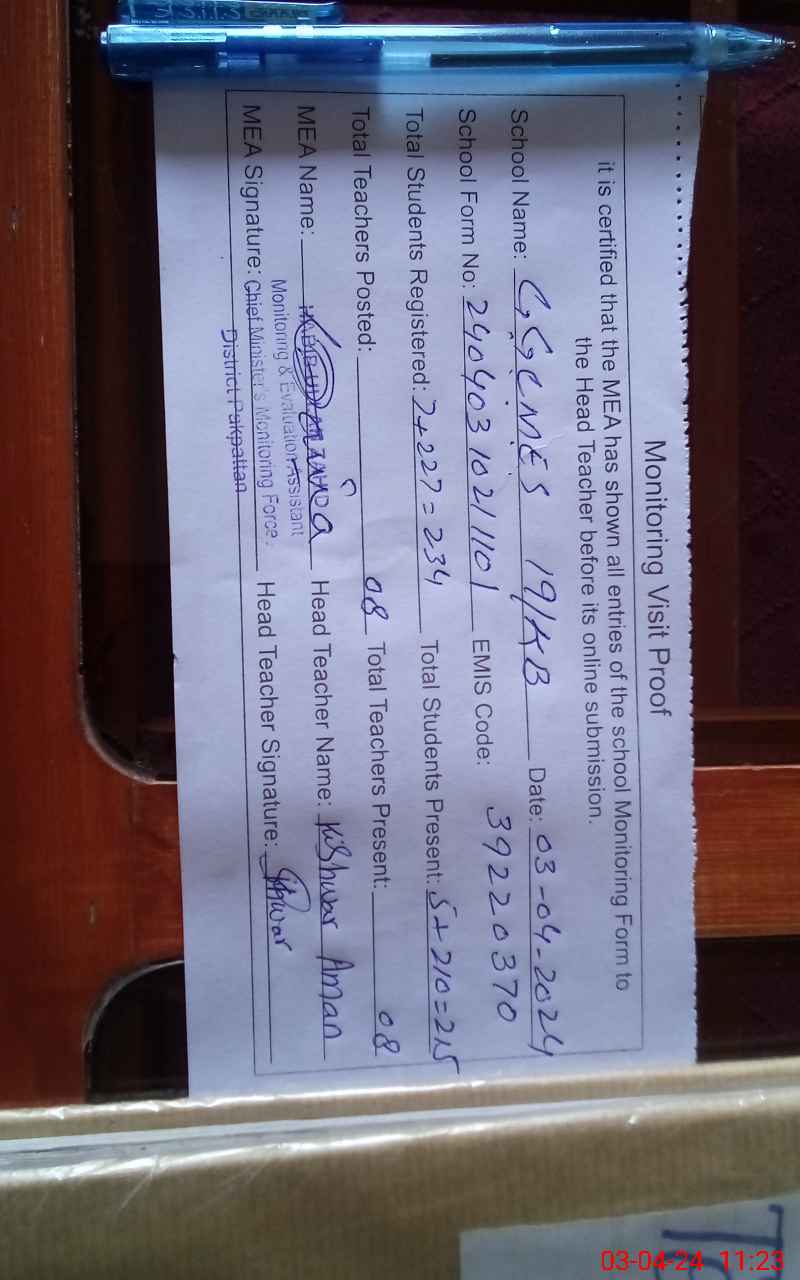 Monitoring Visit Proof
it is certified that the MEA has shown all entries of the school Monitoring Form to
the Head Teacher before its online submission.
School Name: G.G.C.M.E.S 19/KB Date: 03-04-2024
School Form No: 24040310211101 EMIS Code: 39220370
Total Students Registered: 7+227=234 Total Students Present: 5+210=215
Total Teachers Posted: 08 Total Teachers Present: 08
MEA Name: Head Teacher Name: Kishwar Aman
Monitoring & Evaluation Assistant
MEA Signature: Chief Minister's Monitoring Force. Head Teacher Signature: Kishwar
District Pakpattan
03-04-24 11:23